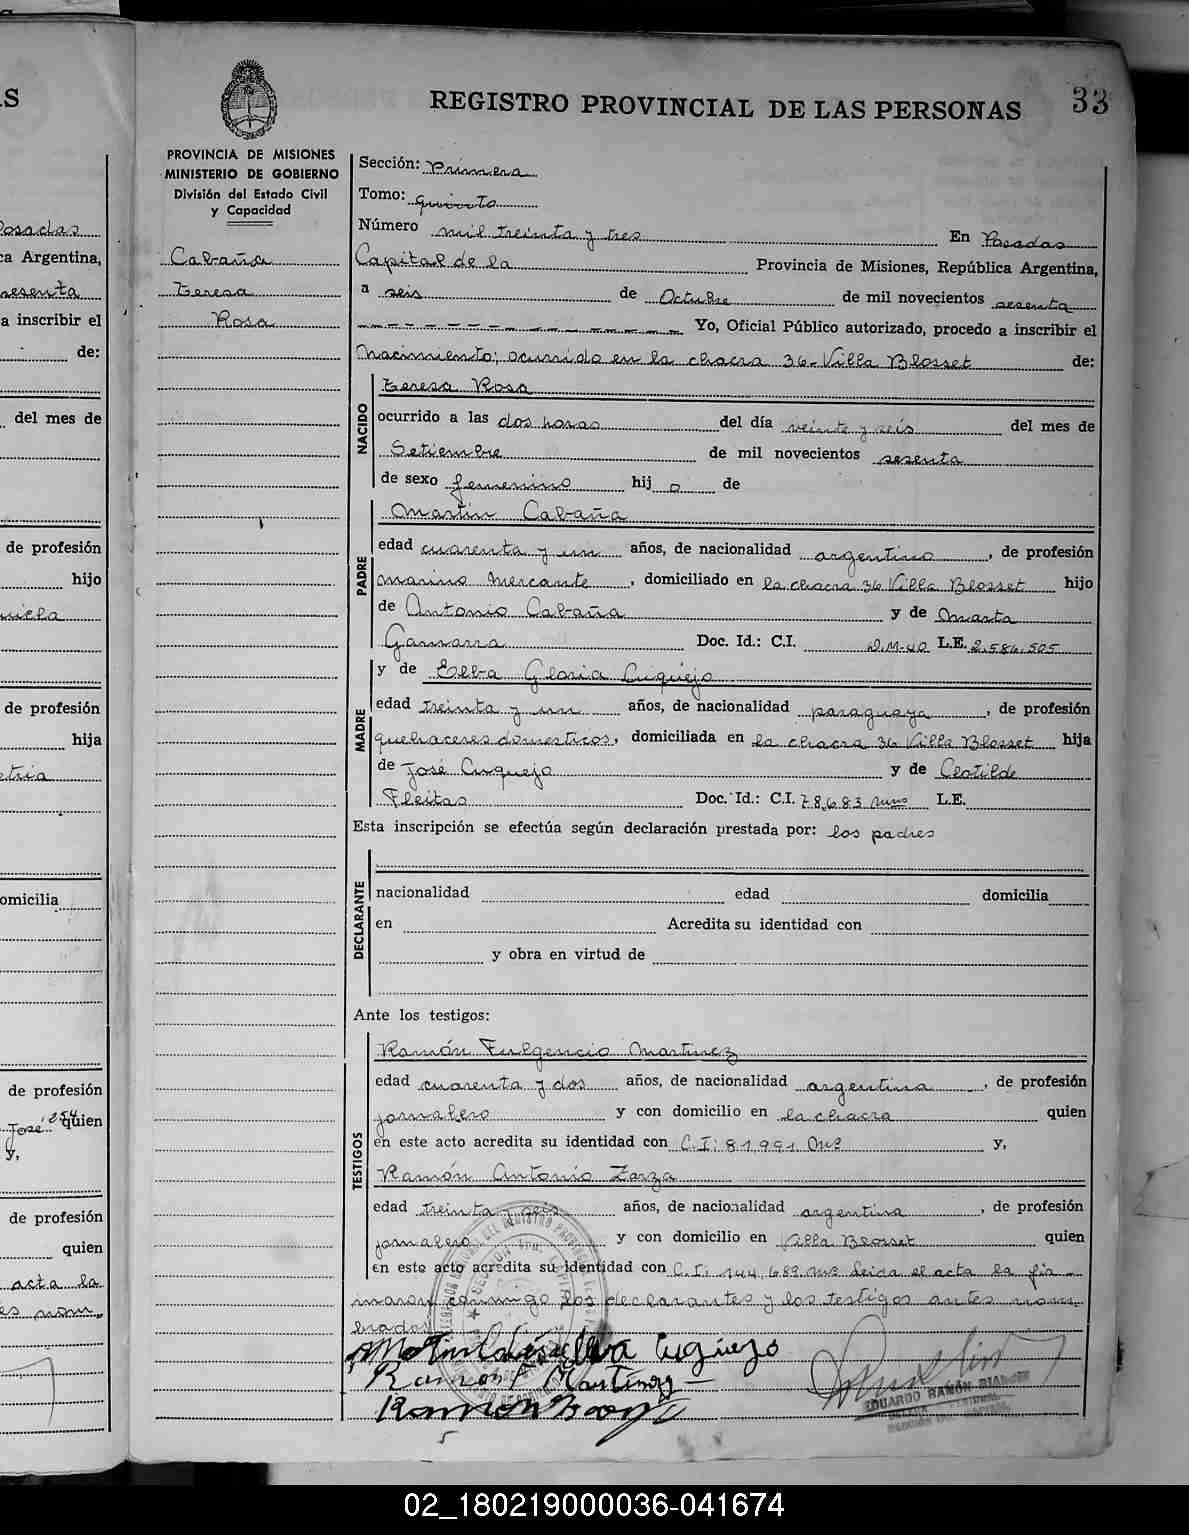 REGISTRO PROVINCIAL DE LAS PERSONAS 33
PROVINCIA DE MISIONES
MINISTERIO DE GOBIERNO
División del Estado Civil
y Capacidad
Cabaña
Teresa
Rosa
Sección: Primera
Tomo: quinto
Número mil treinta y tres En Posadas
Capital de la Provincia de Misiones, República Argentina,
a seis de Octubre de mil novecientos sesenta
Yo, Oficial Público autorizado, procedo a inscribir el
Nacimiento; ocurrido en la chacra 36-Villa Blosset de:
NACIDO
Teresa Rosa
ocurrido a las dos horas del día veinte y seis del mes de
Setiembre de mil novecientos sesenta
de sexo femenino hij a de
PADRE
Martín Cabaña
edad cuarenta y un años, de nacionalidad argentino, de profesión
marino mercante, domiciliado en la chacra 36 Villa Blosset hijo
de Antonio Cabaña y de Marta
Gamarra Doc. Id.: C.I. D.M-40 L.E. 2.584.505
MADRE
y de Elba Gloria Cuquejo
edad treinta y un años, de nacionalidad paraguaya, de profesión
quehaceres domesticos, domiciliada en la chacra 36 Villa Blosset hija
de José Cuquejo y de Clotilde
Fleitas Doc. Id.: C.I. 78.683 Mnes L.E.
Esta inscripción se efectúa según declaración prestada por: los padres
DECLARANTE
nacionalidad edad domicilia
en Acredita su identidad con
y obra en virtud de
Ante los testigos:
TESTIGOS
Ramón Fulgencio Martinez
edad cuarenta y dos años, de nacionalidad argentina, de profesión
jornalero y con domicilio en la chacra quien
en este acto acredita su identidad con C.I: 81.991 Mns y,
Ramón Antonio Zarza
edad treinta y seis años, de nacionalidad argentina, de profesión
jornalero y con domicilio en Villa Blosset quien
en este acto acredita su identidad con C.I: 144.689 Mns leida el acta la fir-
maron conmigo los declarantes y los testigos antes nom-
brados
Elva Cuquejo
Ramon F Martinez
Ramon
EDUARDO RAMÓN
02_180219000036-041674